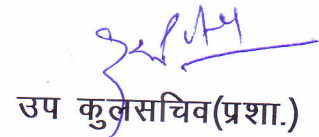 उप कुलसचिव(प्रशा.)